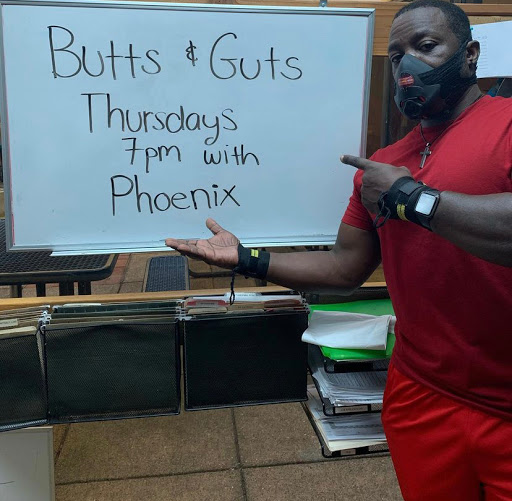 Butts & Guts
Thursdays
7pm with
Phoenix